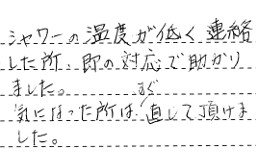 シャワーの温度が低く連絡
した所、即の対応で助かり
ました。
気になった所は、すぐ直して頂けま
した。